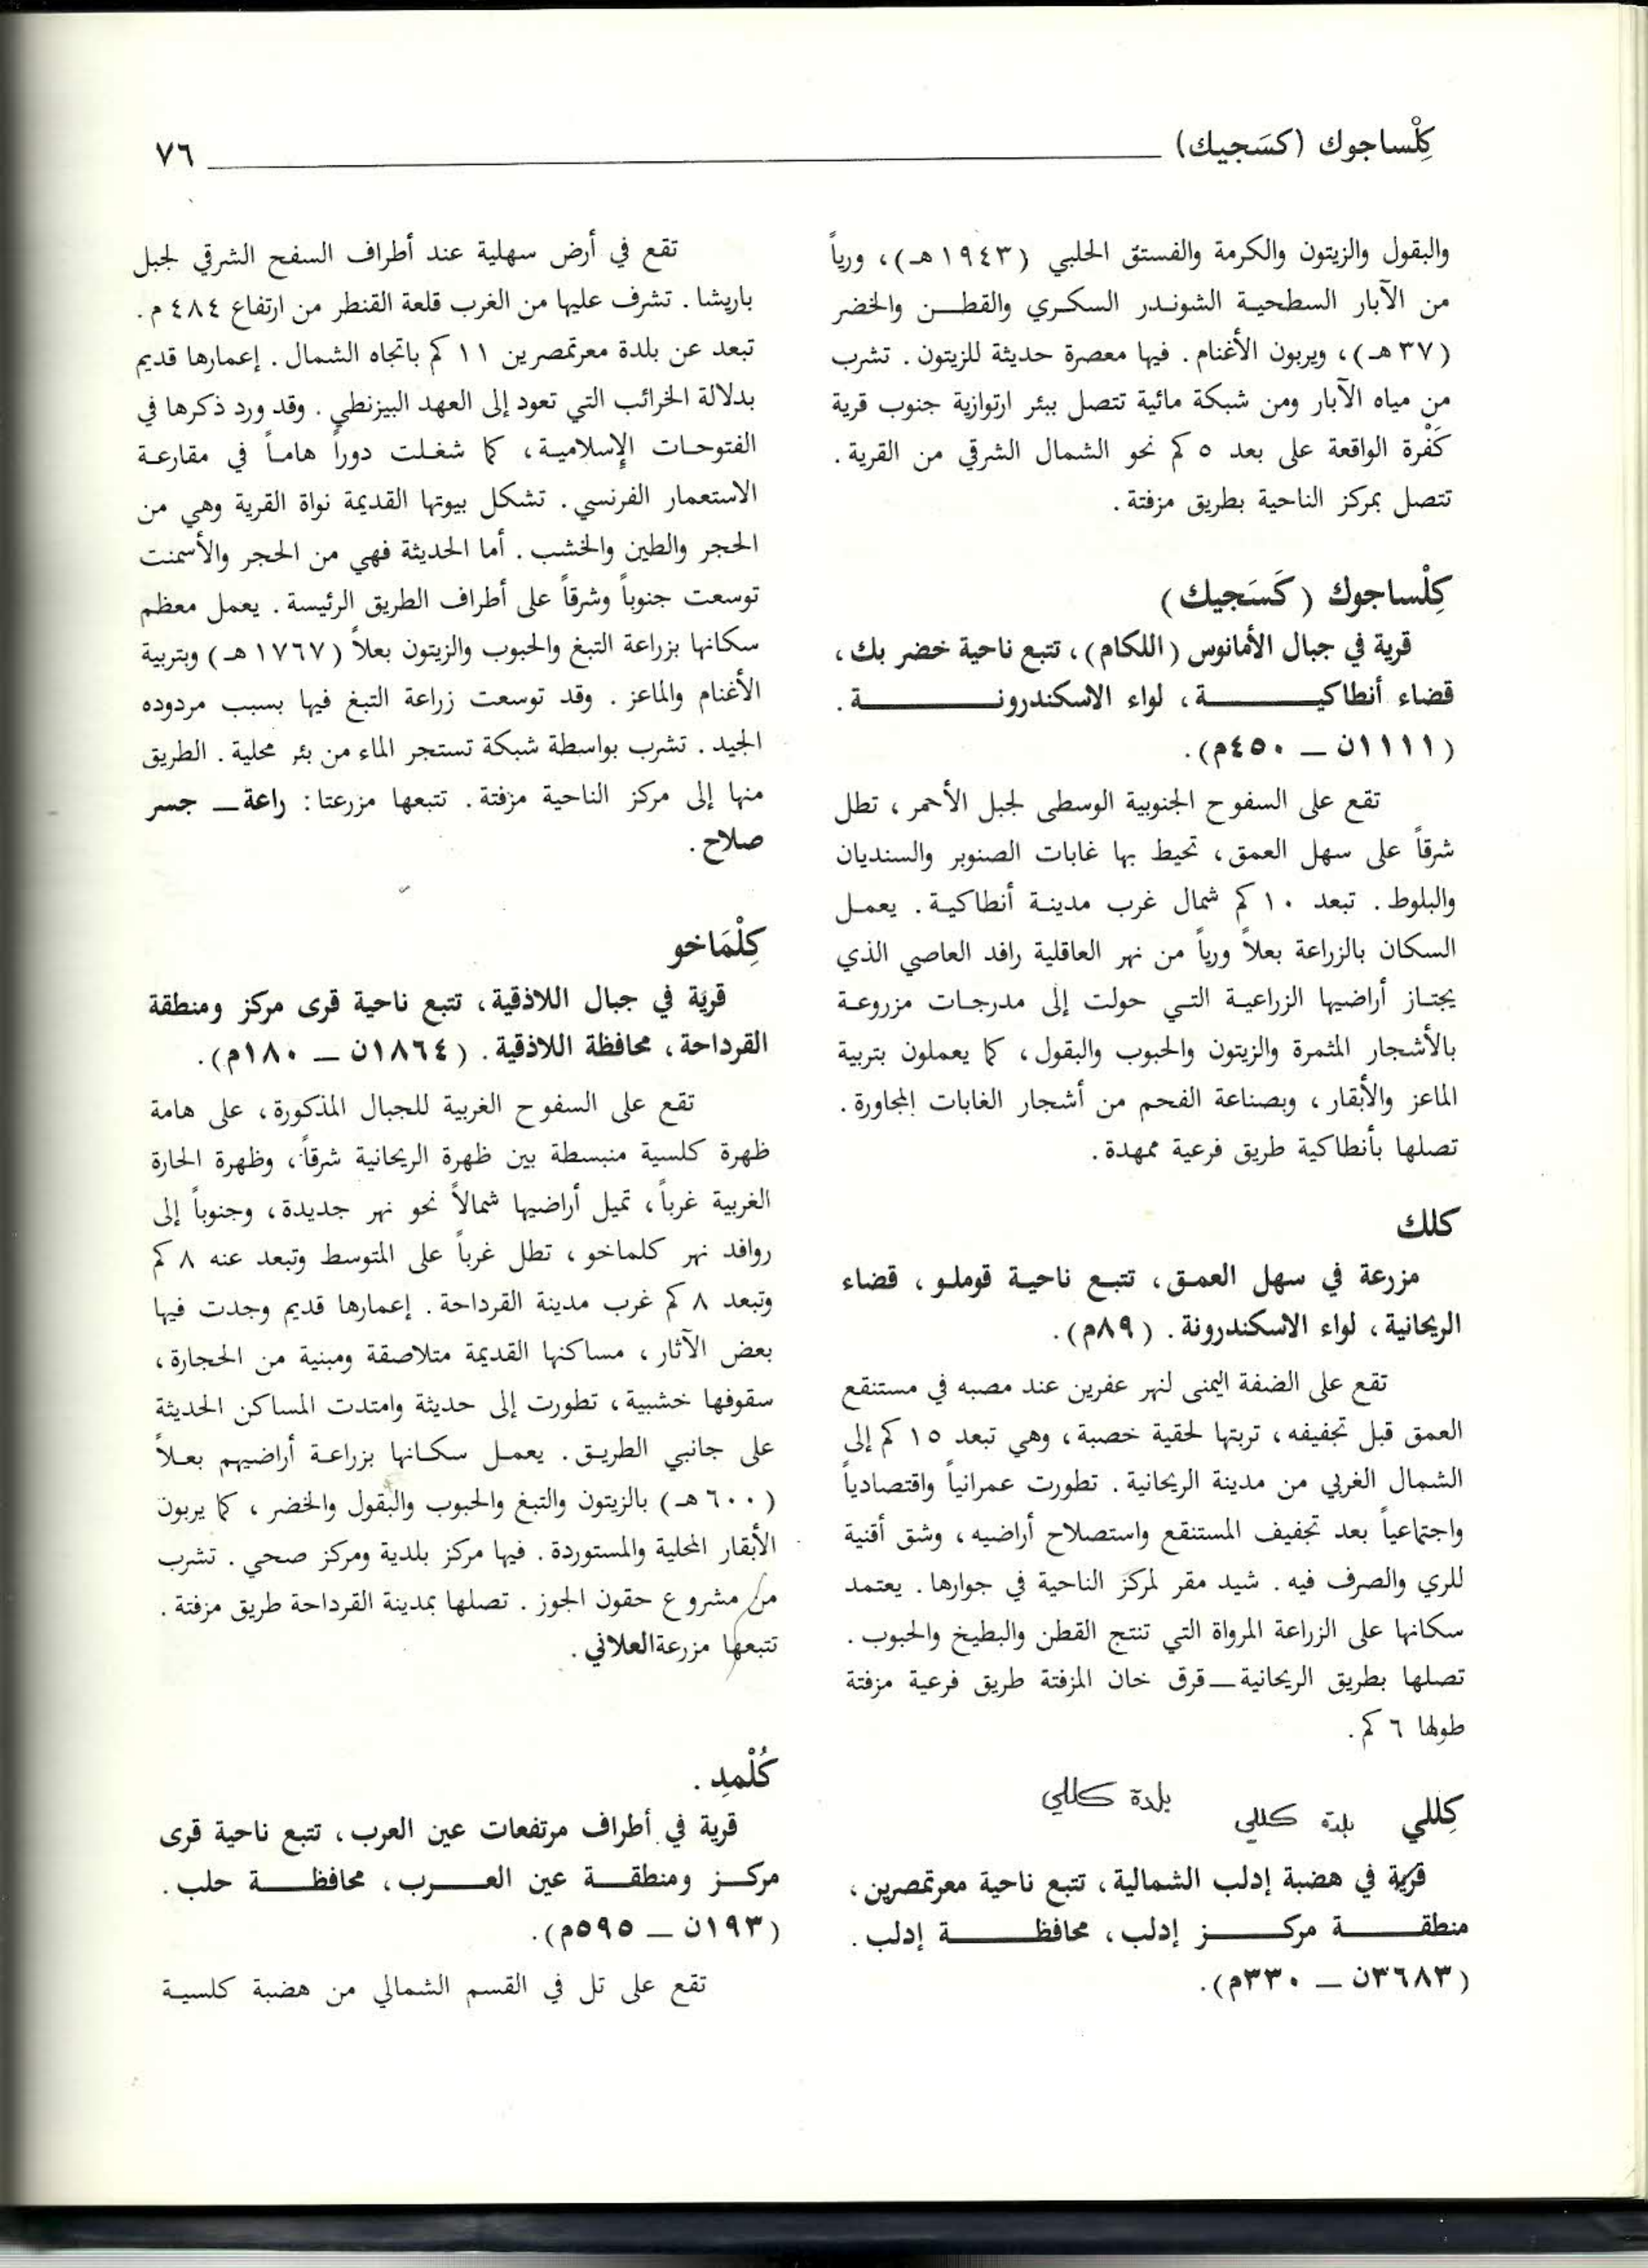 كِلْساجوك (كسَجيك)
٧٦
والبقول والزيتون والكرمة والفستق الحلبي (١٩٤٣هـ)، ورياً
من الآبار السطحية الشوندر السكري والقطن والخضر
(٣٧هـ)، ويربون الأغنام. فيها معصرة حديثة للزيتون. تشرب
من مياه الآبار ومن شبكة مائية تتصل ببئر ارتوازية جنوب قرية
كَفْرة الواقعة على بعد ٥ كم نحو الشمال الشرقي من القرية.
تتصل بمركز الناحية بطريق مزفتة.
كِلْساجوك (كَسَجيك)
قرية في جبال الأمانوس (اللكام)، تتبع ناحية خضر بك،
قضاء أنطاكيـــة، لواء الاسكندرونـــة.
(١١١١ن — ٤٥٠م).
تقع على السفوح الجنوبية الوسطى لجبل الأحمر، تطل
شرقاً على سهل العمق، تحيط بها غابات الصنوبر والسنديان
والبلوط. تبعد ١٠ كم شمال غرب مدينة أنطاكية. يعمل
السكان بالزراعة بعلاً ورياً من نهر العاقلية رافد العاصي الذي
يجتاز أراضيها الزراعية التي حولت إلى مدرجات مزروعة
بالأشجار المثمرة والزيتون والحبوب والبقول، كما يعملون بتربية
الماعز والأبقار، وبصناعة الفحم من أشجار الغابات المجاورة.
تصلها بأنطاكية طريق فرعية ممهدة.
كلك
مزرعة في سهل العمق، تتبع ناحية قوملو، قضاء
الريحانية، لواء الاسكندرونة. (٨٩م).
تقع على الضفة اليمنى لنهر عفرين عند مصبه في مستنقع
العمق قبل تجفيفه، تربتها لحقية خصبة، وهي تبعد ١٥ كم إلى
الشمال الغربي من مدينة الريحانية. تطورت عمرانياً واقتصادياً
واجتماعياً بعد تجفيف المستنقع واستصلاح أراضيه، وشق أقنية
للري والصرف فيه. شيد مقر لمركز الناحية في جوارها. يعتمد
سكانها على الزراعة المرواة التي تنتج القطن والبطيخ والحبوب.
تصلها بطريق الريحانية — قرق خان المزفتة طريق فرعية مزفتة
طولها ٦ كم.
كِللي بلدة كللي بلدة كللي
قرية في هضبة إدلب الشمالية، تتبع ناحية معرتمصرين،
منطقـــة مركـــز إدلب، محافظـــة إدلب.
(٣٦٨٣ن — ٣٣٠م).
تقع في أرض سهلية عند أطراف السفح الشرقي لجبل
باريشا. تشرف عليها من الغرب قلعة القنطر من ارتفاع ٤٨٤ م.
تبعد عن بلدة معرتمصرين ١١ كم باتجاه الشمال. إعمارها قديم
بدلالة الخرائب التي تعود إلى العهد البيزنطي. وقد ورد ذكرها في
الفتوحات الإسلامية، كما شغلت دوراً هاماً في مقارعة
الاستعمار الفرنسي. تشكل بيوتها القديمة نواة القرية وهي من
الحجر والطين والخشب. أما الحديثة فهي من الحجر والأسمنت
توسعت جنوباً وشرقاً على أطراف الطريق الرئيسة. يعمل معظم
سكانها بزراعة التبغ والحبوب والزيتون بعلاً (١٧٦٧هـ) وبتربية
الأغنام والماعز. وقد توسعت زراعة التبغ فيها بسبب مردوده
الجيد. تشرب بواسطة شبكة تستجر الماء من بئر محلية. الطريق
منها إلى مركز الناحية مزفتة. تتبعها مزرعتا: راعة — جسر
صلاح.
كِلْمَاخو
قرية في جبال اللاذقية، تتبع ناحية قرى مركز ومنطقة
القرداحة، محافظة اللاذقية. (١٨٦٤ن — ١٨٠م).
تقع على السفوح الغربية للجبال المذكورة، على هامة
ظهرة كلسية منبسطة بين ظهرة الريحانية شرقاً، وظهرة الحارة
الغربية غرباً، تميل أراضيها شمالاً نحو نهر جديدة، وجنوباً إلى
روافد نهر كلماخو، تطل غرباً على المتوسط وتبعد عنه ٨ كم
وتبعد ٨ كم غرب مدينة القرداحة. إعمارها قديم وجدت فيها
بعض الآثار، مساكنها القديمة متلاصقة ومبنية من الحجارة،
سقوفها خشبية، تطورت إلى حديثة وامتدت المساكن الحديثة
على جانبي الطريق. يعمل سكانها بزراعة أراضيهم بعلاً
(٦٠٠هـ) بالزيتون والتبغ والحبوب والبقول والخضر، كما يربون
الأبقار المحلية والمستوردة. فيها مركز بلدية ومركز صحي. تشرب
من مشروع حقون الجوز. تصلها بمدينة القرداحة طريق مزفتة.
تتبعها مزرعة العلاني.
كُلْمدِ.
قرية في أطراف مرتفعات عين العرب، تتبع ناحية قرى
مركـز ومنطقـة عين العـرب، محافظـة حلب.
(١٩٣ن — ٥٩٥م).
تقع على تل في القسم الشمالي من هضبة كلسية